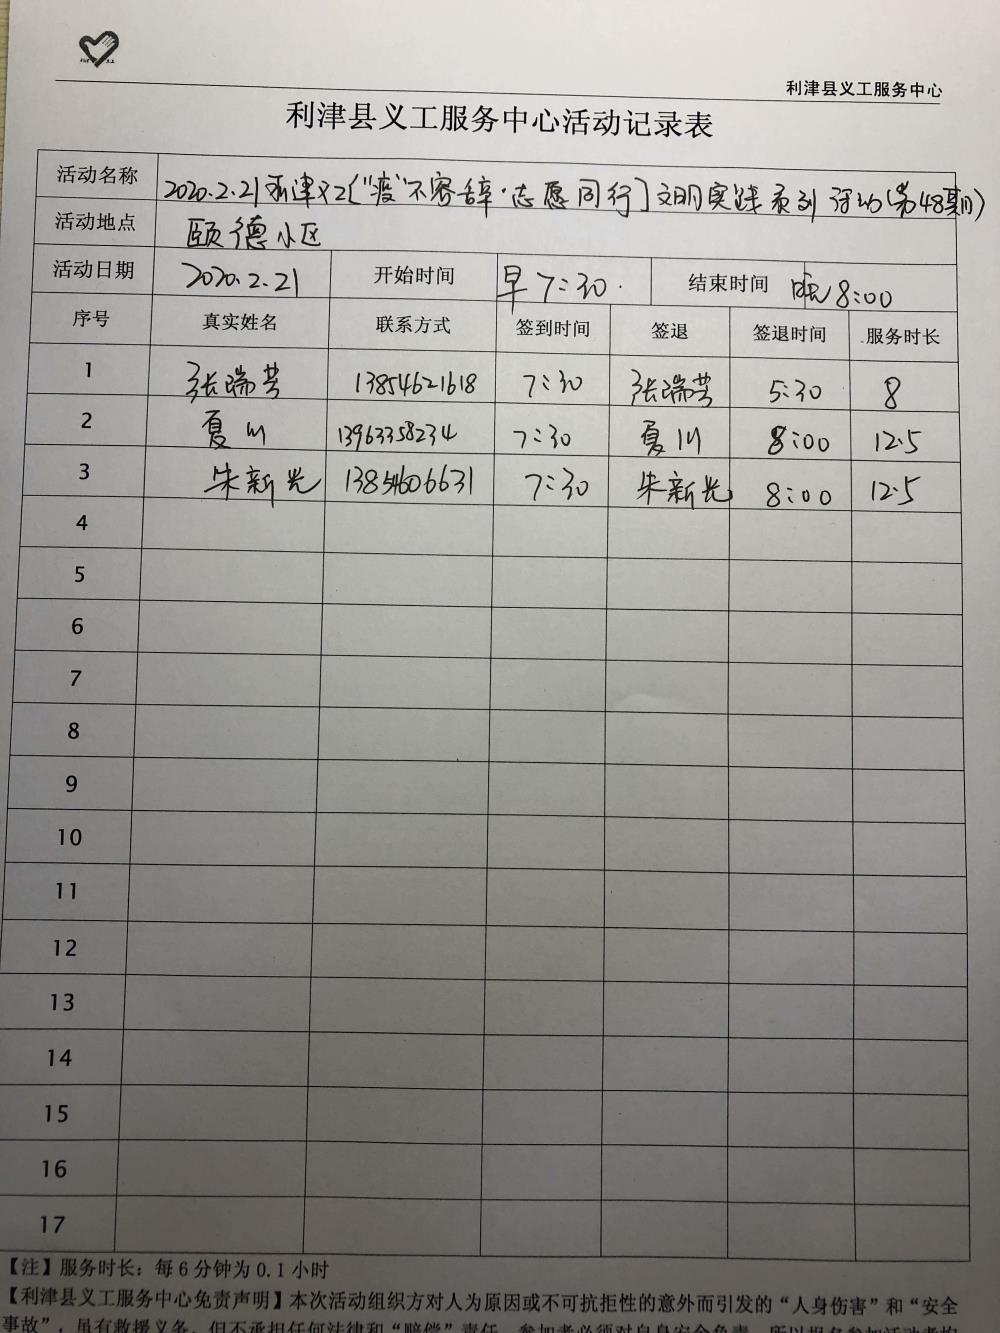 利津县义工服务中心
利津县义工服务中心活动记录表
活动名称 2020.2.21利津义工["疫"不容辞·志愿同行]文明实践系列活动(第48期)
活动地点 颐德小区
活动日期 2020.2.21 开始时间 早7:30. 结束时间 晚8:00
序号 真实姓名 联系方式 签到时间 签退 签退时间 服务时长
1 张瑞芳 13854621618 7:30 张瑞芳 5:30 8
2 夏川 13963358234 7:30 夏川 8:00 12.5
3 朱新光 13854606631 7:30 朱新光 8:00 12.5
4
5
6
7
8
9
10
11
12
13
14
15
16
17
【注】服务时长：每6分钟为0.1小时
【利津县义工服务中心免责声明】本次活动组织方对人为原因或不可抗拒性的意外而引发的“人身伤害”和“安全
事故”，虽有救援义务，但不承担任何法律和“赔偿”责任，参加者必须对自身安全负责，所以报名参加活动者均